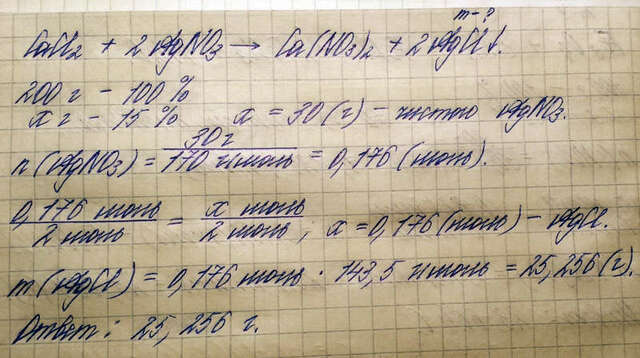 m - ?
CaCl₂ + 2 AgNO₃ → Ca(NO₃)₂ + 2 AgCl↓.
200 г – 100 %
x г – 15 % x = 30 (г) – чистого AgNO₃.
n (AgNO₃) = 30 г / 170 г/моль = 0,176 (моль).
0,176 моль / 2 моль = x моль / 2 моль ; x = 0,176 (моль) – AgCl.
m (AgCl) = 0,176 моль · 143,5 г/моль = 25,256 (г).
Ответ: 25,256 г.